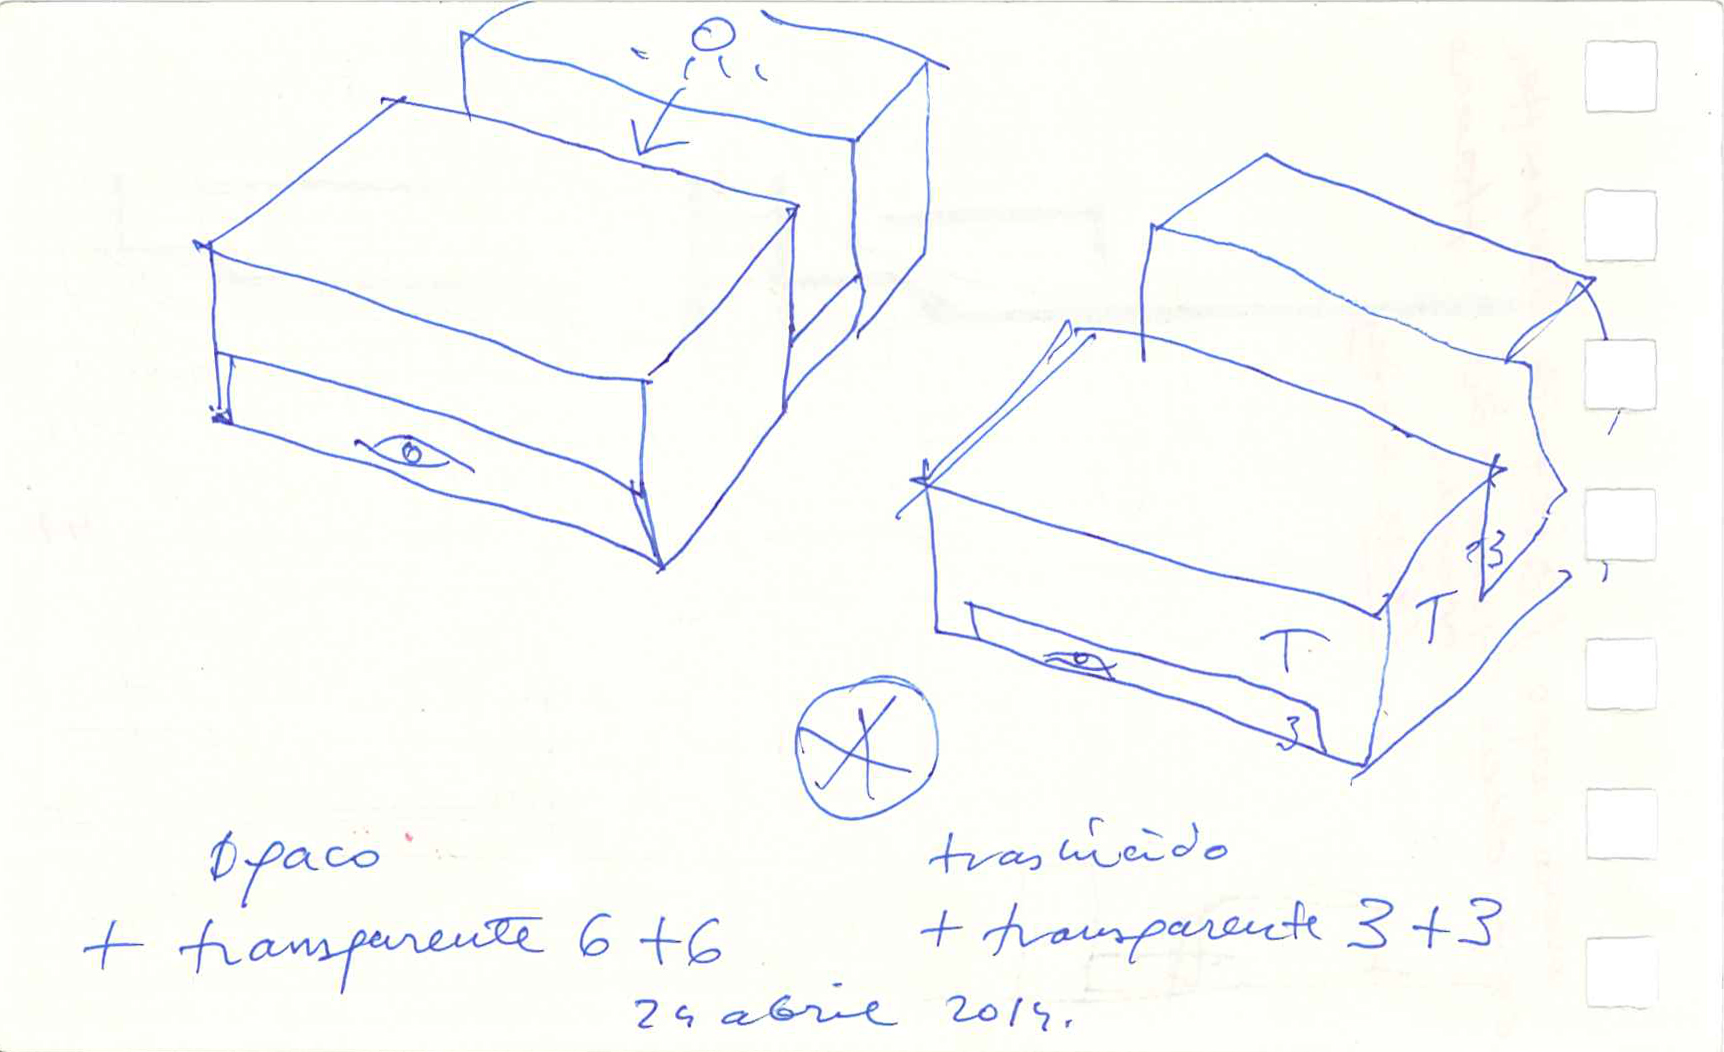 T
T
3
3
Opaco
+ transparente 6+6
traslúcido
+ transparente 3+3
24 abril 2014.